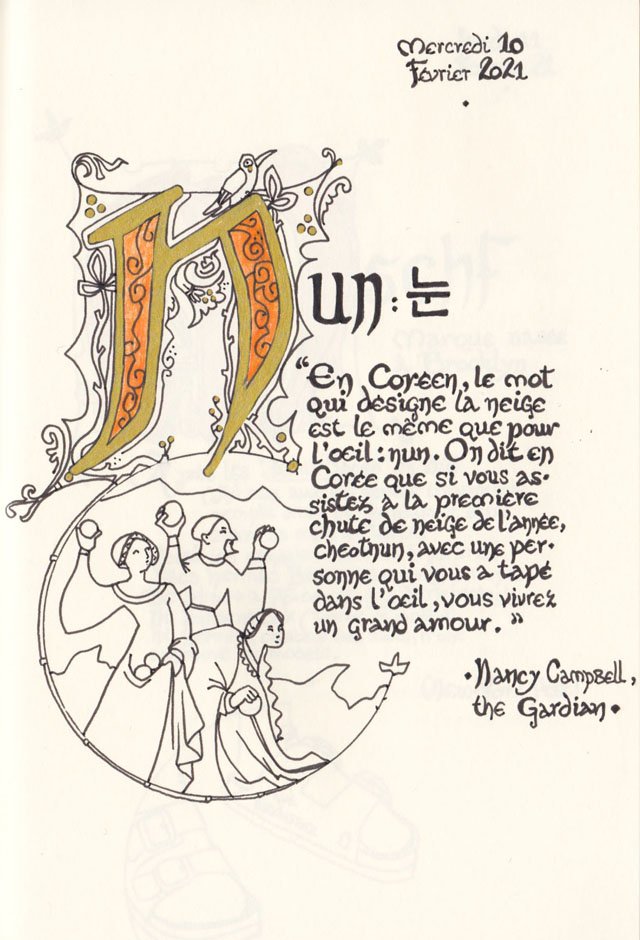 Mercredi 10
Février 2021
Nun : 눈
"En Coréen, le mot
qui désigne la neige
est le même que pour
l'oeil : nun. On dit en
Corée que si vous as-
sistez à la première
chute de neige de l'année,
cheotnun, avec une per-
sonne qui vous a tapé
dans l'oeil, vous vivrez
un grand amour."
• Nancy Campbell,
the Gardian •